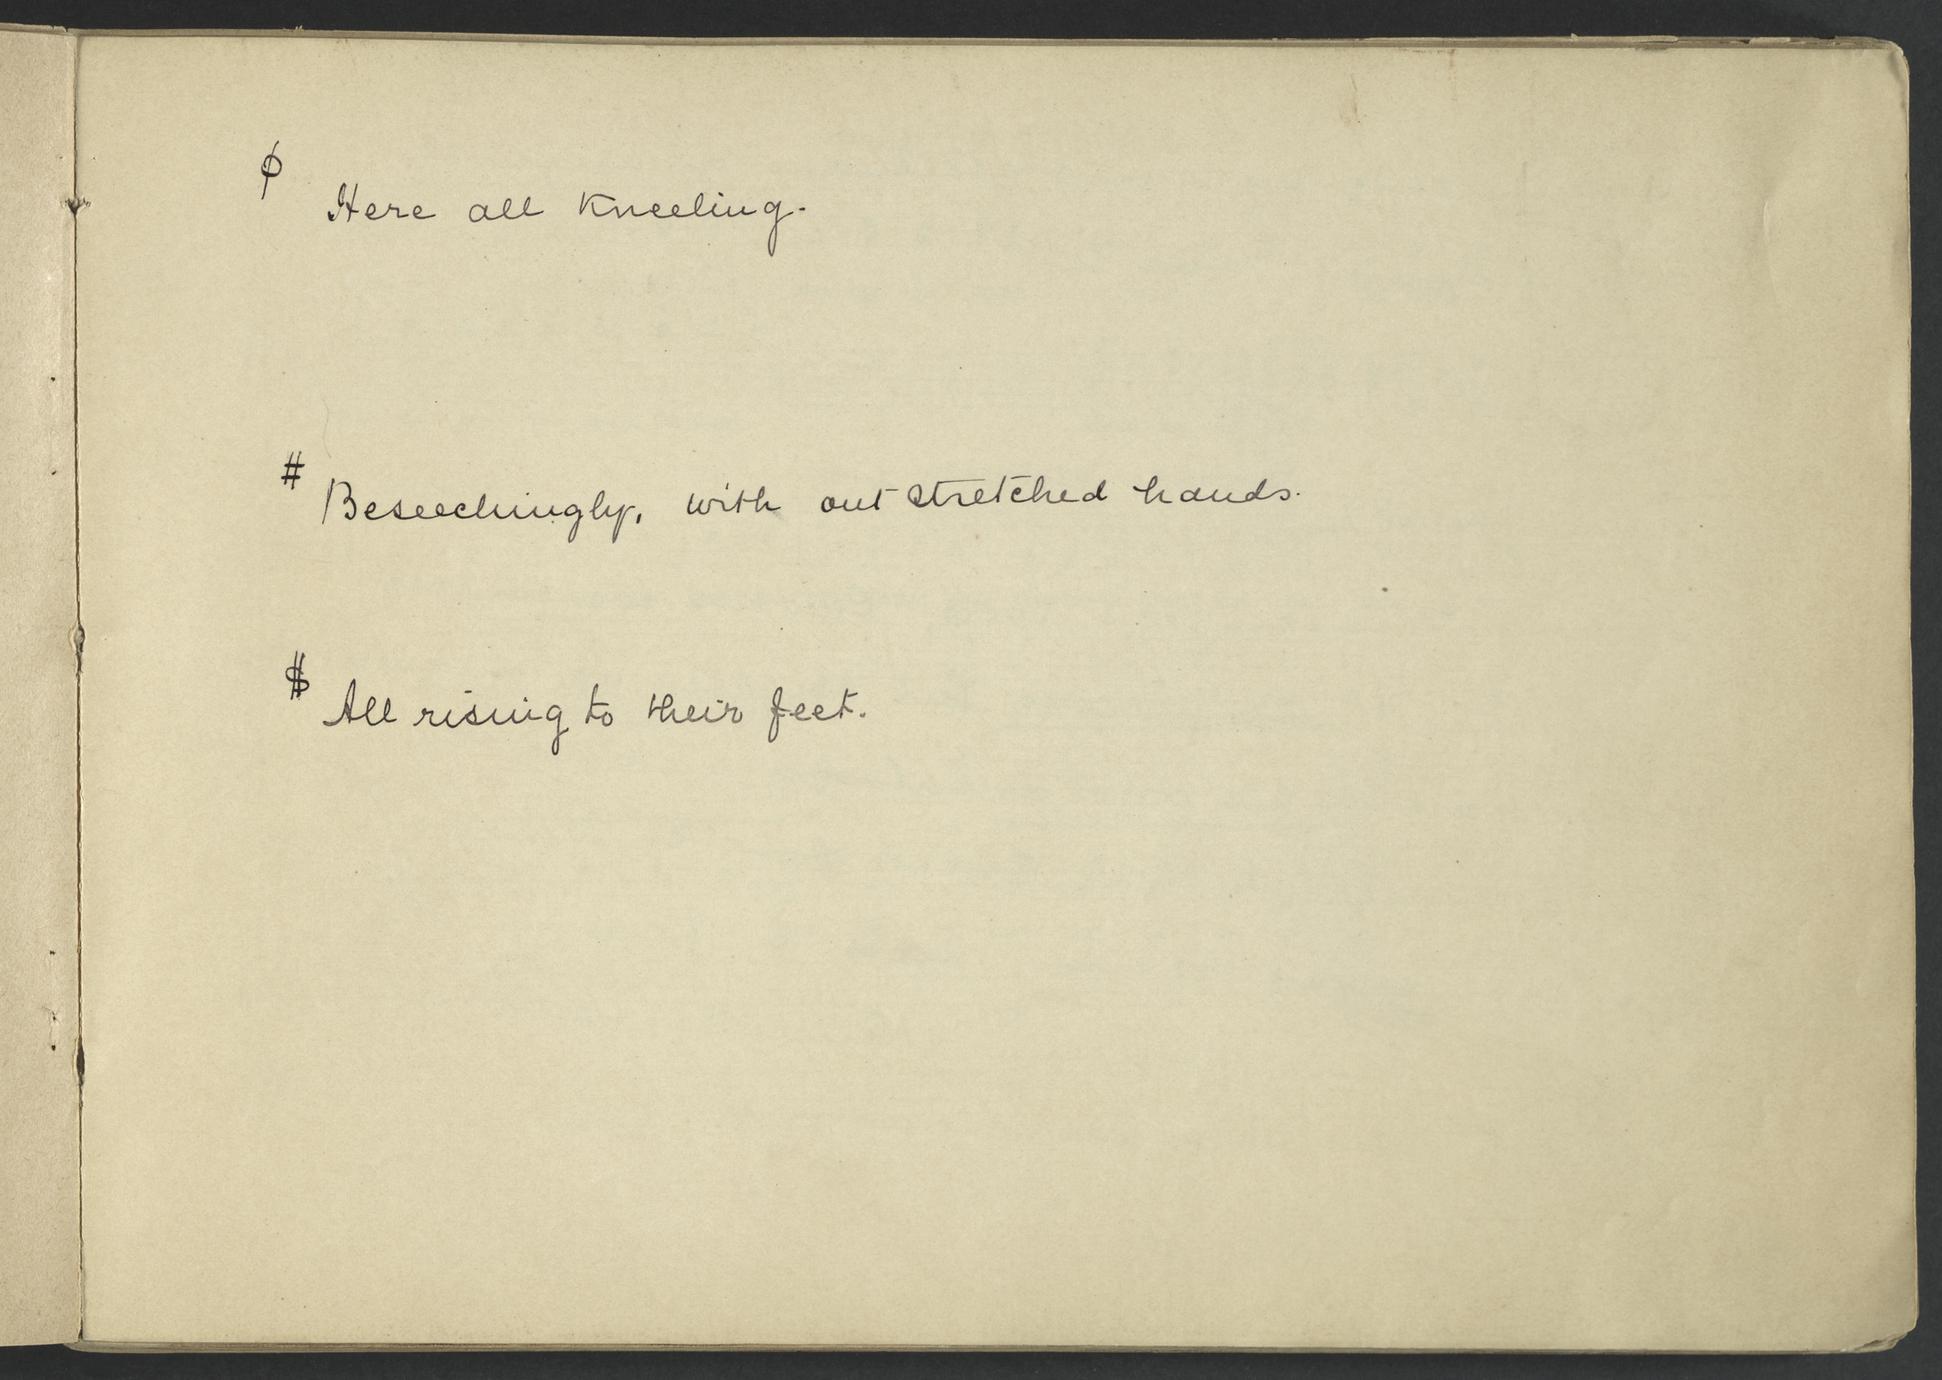 ϕ Here all kneeling.
# Beseechingly, with out stretched hands.
$ All rising to their feet.